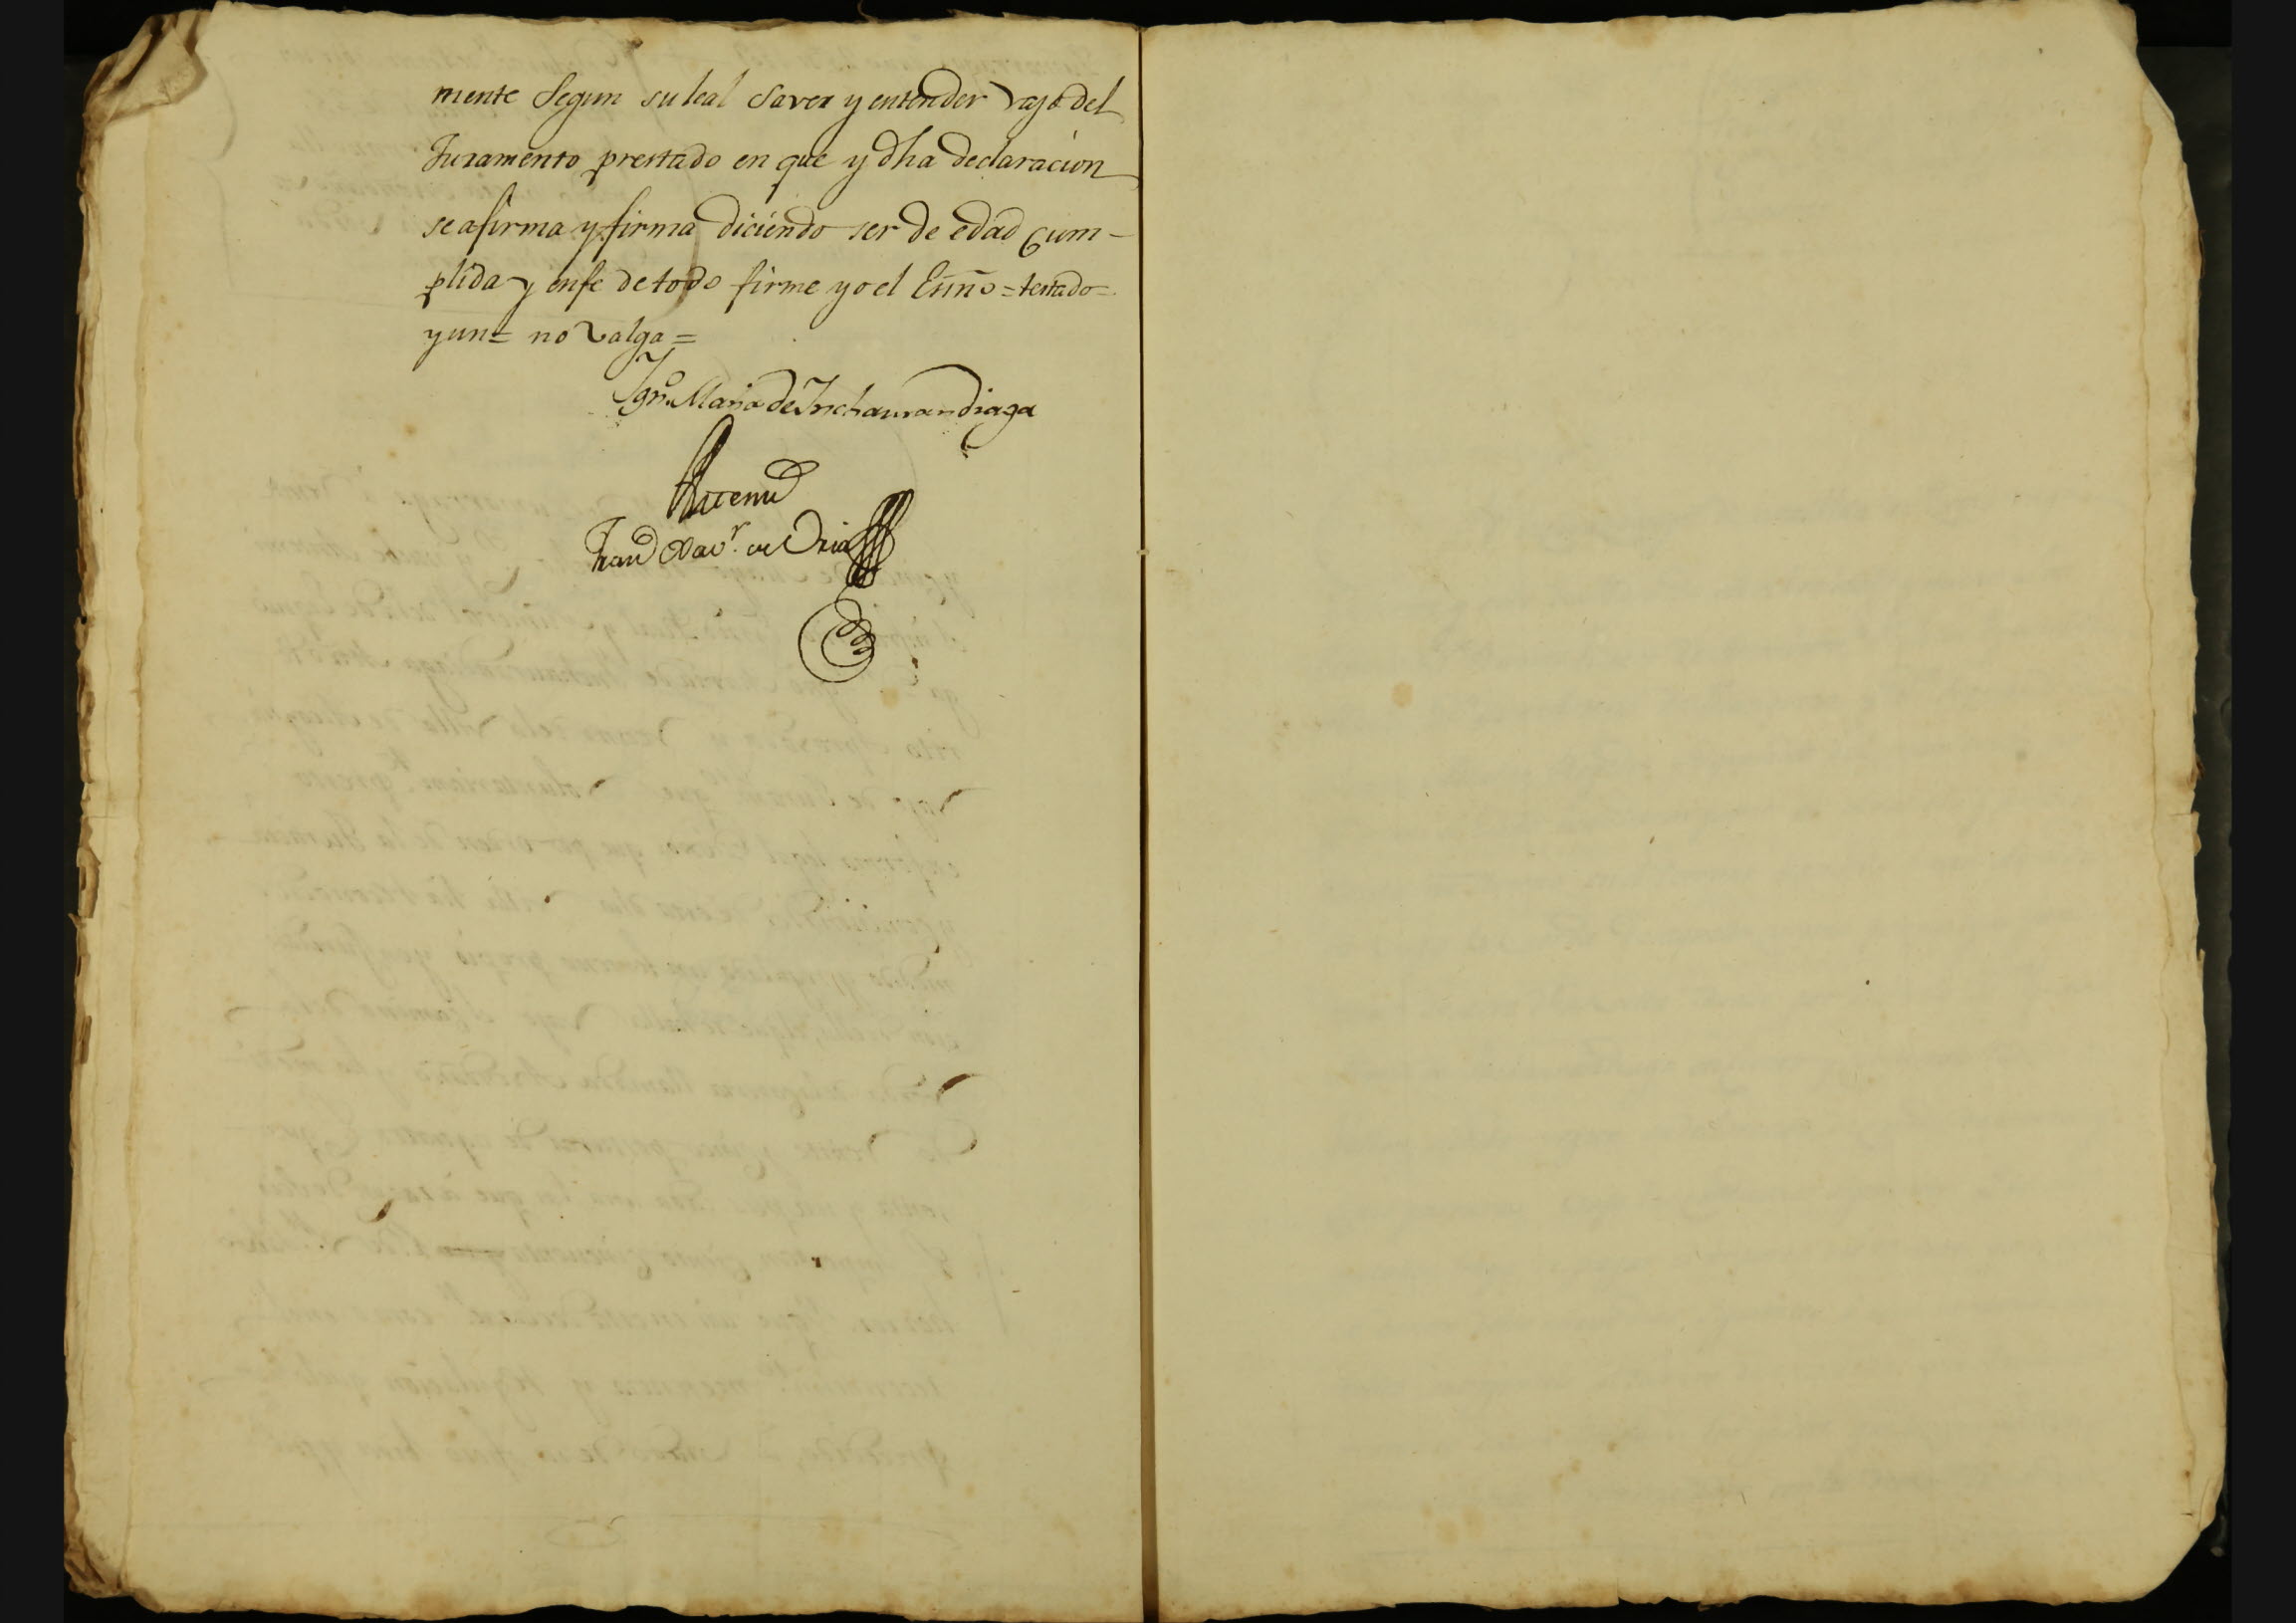 mente Segun su leal Saver y entender vajo del
Juramento prestado en que y dha declaracion
se afirma y firma diciendo ser de edad Cum-
plida y enfe de todo firme yo el Essno = testado =
y un = no valga =
Ygn.º Maria de Inchaurandiaga
Antemi
Fran.co Xav.r de Oria